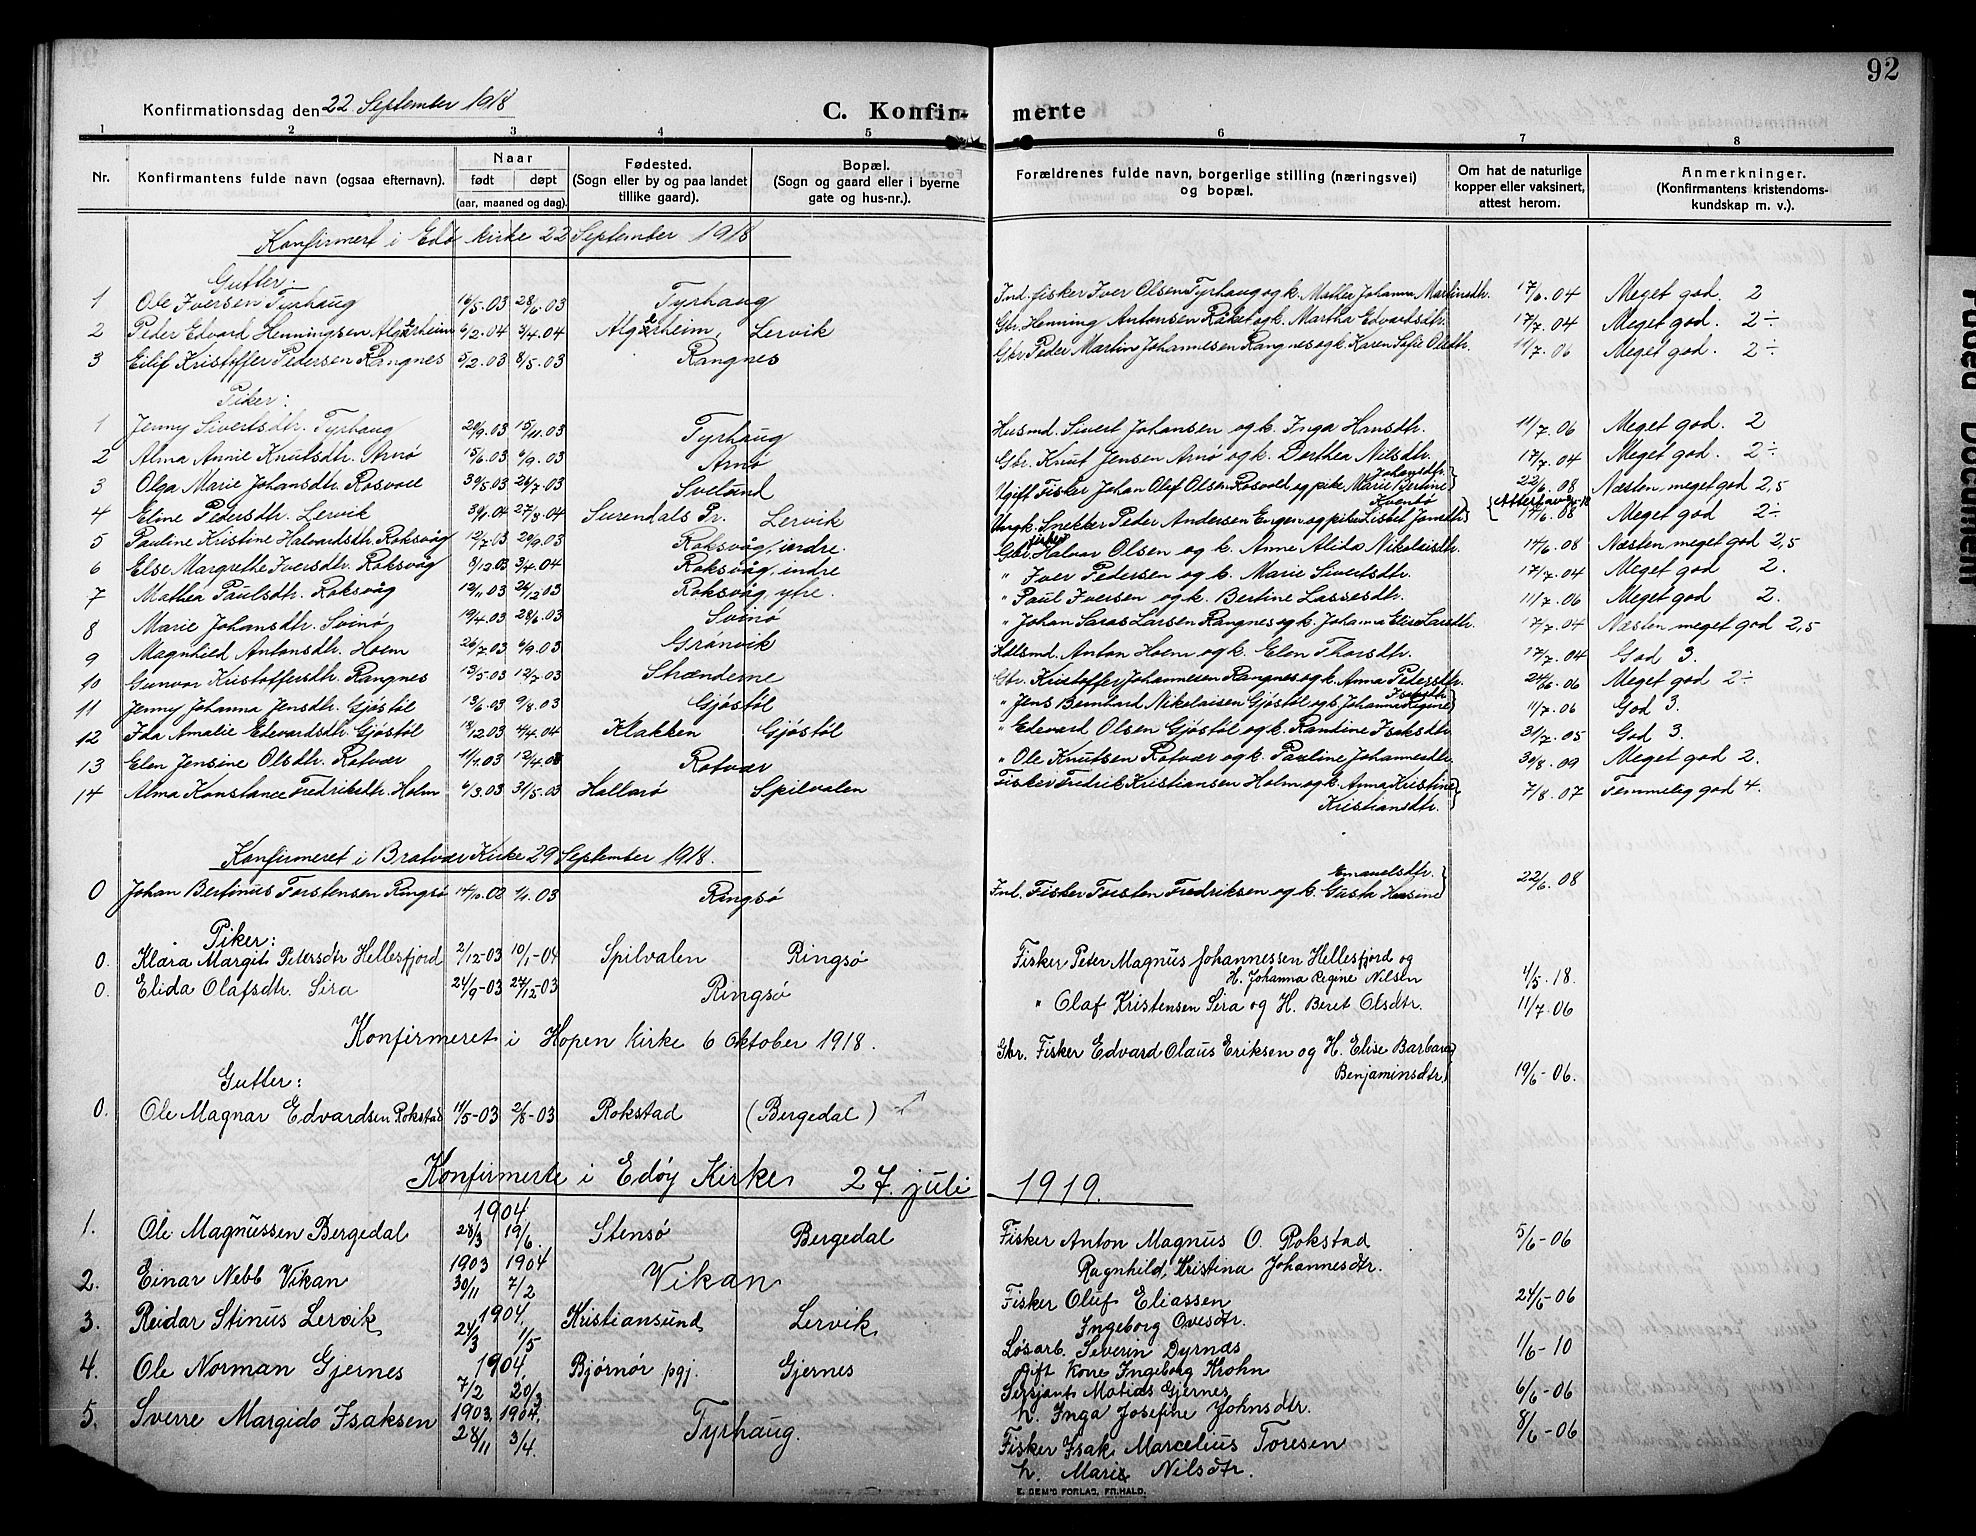 92
Konfirmationsdag den 22 September 1918
C. Konfir- merte
1 2 3 4 5 6 7 8
Nr. Konfirmantens fulde navn (ogsaa efternavn). Naar født døpt (aar, maaned og dag). Fødested. (Sogn eller by og paa landet tillike gaard). Bopæl. (Sogn og gaard eller i byerne gate og hus-nr.). Forældrenes fulde navn, borgerlige stilling (næringsvei) og bopæl. Om hat de naturlige kopper eller vaksinert, attest herom. Anmerkninger. (Konfirmantens kristendoms-kundskap m. v.).
Konfirmert i Edø kirke 22 September 1918
Gutter:
1 Ole Iversen Tyrhaug 16/5.03 28/6.03 Tyrhaug Ind. fisker Iver Olsen Tyrhaug og k. Mathea Johanna Martinsdtr. 17/6.04 Meget god. 2
2 Peder Edvard Henningsen Algærheim 6/2.04 3/4.04 Algærheim, Lervik Gbr. Henning Antonsen Råket og k. Martha Edvardsdtr. 17/7.04 Meget god. 2÷
3 Eilif Kristoffer Pedersen Rangnes 5/2.03 8/5.03 Rangnes Gbr. Peder Martin Johannesen Rangnes og k. Karen Sofie Olsdtr. 11/7.06 Meget god. 2÷
Piker:
1 Jenny Sivertsdtr. Tyrhaug 29/9.03 15/11.03 Tyrhaug Husmd. Sivert Johansen og k. Inga Hansdtr. 11/7.06 Meget god. 2
2 Alma Annie Knutsdtr. Arnø 15/6.03 6/9.03 Arnø Gbr. Knut Jensen Arnø og k. Dorthea Nilsdtr. 17/7.04 Meget god. 2÷
3 Olga Marie Johansdtr. Rosvoll 30/5.03 26/7.03 Sveland Ugift Fisker Johan Olef Olsen Rosvoll og pike Marie Bertine Johansdtr. 22/6.08 Næsten meget god 2,5
4 Eline Pedersdtr. Lervik 30/1.04 27/3.04 Surendals Pr. Lervik Ungk. Snekker Peder Andersen Engen og pike Lisbet Jonsdtr. Kvensø 17/6.08 Meget god 2÷
5 Pauline Kristine Halvardsdtr. Roksvåg 12/7.03 20/9.03 Roksvåg, indre. Gbr. fisker Halvar Olsen og k. Anne Alida Nikolaisdtr. 14/6.08 Næsten meget god 2,5
6 Else Margrethe Iversdtr. Roksvåg 8/12.03 3/4.04 Roksvåg, indre " Iver Pedersen og k. Marie Sivertsdtr. 17/7.04 Meget god 2.
7 Mathea Paulsdtr. Roksvåg 12/11.03 24/12.03 Roksvåg, ytre. " Paul Iversen og k. Bertine Lassesdtr. 11/7.06 Meget god 2.
8 Marie Johansdtr. Svinø 19/4.03 28/6.03 Svinø " Johan Saras Larsen Rangnes og k. Johanna Elise Larsdtr. 17/7.04 Næsten meget god 2,5
9 Magnhild Antonsdtr. Hoem 26/7.03 6/9.03 Grønvik Husmd. Anton Hoem og k. Elen Thorsdtr. 17/7.04 God 3.
10 Gunvor Kristoffersdtr. Rangnes 13/5.03 12/7.03 Strænderne Gbr. Kristoffer Johannesen Rangnes og k. Anna Pedersdtr. 24/6.06 Meget god 2÷
11 Jenny Johanna Jensdtr. Gjøstøl 13/6.03 9/8.03 Gjøstøl " Jens Bernhard Nikolaisen Gjøstøl og k. Johanne Regine Isaksdtr. 11/7.06 God 3.
12 Ida Amalie Edevardsdtr. Gjøstøl 18/12.03 4/4.04 Klakken Gjøstøl " Edevard Olsen Gjøstøl og k. Randine Isaksdtr. 31/7.05 God 3.
13 Elen Jensine Olsdtr. Rotvær 11/1.03 12/4.03 Rotvær " Ole Knutsen Rotvær og k. Pauline Johannesdtr. 30/8.09 Meget god 2.
14 Alma Konstance Fredriksdtr. Holm 6/3.03 31/5.03 Hallarø Spilvalen Fisker Fredrik Kristiansen Holm og k. Anna Kristine Kristiansdtr. 7/8.07 Temmelig god 4.
Konfirmeret i Bratvær Kirke 29 September 1918.
0 Johan Bertinus Torstensen Ringsø 14/10.02 1/1.03 Ringsø Inl. Fisker Torsten Fredriksen og k. Gusta Hansine Emanuelsdtr. 22/6.08
Piker:
0. Klara Margit Petersdtr Hellesfjord 2/12-03 10/1-04 Spilvalen Ringsø Fisker Peter Magnus Johannessen Hellesfjord og
H. Johanna Regine Nilsen 4/5.18
0. Elida Olafsdtr. Sira 24/9-03 27/12-03 Ringsø " Olaf Kristensen Sira og H. Beret Olsdtr. 11/7.06
Konfirmeret i Hopen Kirke 6 Oktober 1918.
Gutter:
0. Ole Magnar Edvardsen Rokstad 11/5-03 2/8-03 Rokstad (Bergedal) Gbr. Fisker Edvard Olaus Eriksen og H. Elise Barbara
Benjaminsdtr. 19/6-06.
Konfirmerte i Edøy Kirke 27. juli 1919.
1904
1. Ole Magnussen Bergedal 28/3 19/6. Stensø Bergedal Fisker Anton Magnus O. Rokstad 5/6-06
Ragnhild Kristina Johannesdtr.
1903 1904
2. Einar Nebb Vikan 30/11 7/2 Vikan Fisker Oluf Eliassen 24/6-06
Ingeborg Ovesdtr.
1904.
3. Reidar Stinus Lervik 24/3 1/5 Kristiansund Lervik Løsarb. Severin Dyrnes 1/6-10
Gift Kone Ingeborg Krohn
1904
4. Ole Norman Gjernes 7/2 20/3 Bjørnør pgj. Gjernes Sersjant Matias Gjernes 6/6-06
h. Inga Josefine Johnsdtr.
1903. 1904.
5. Sverre Margido Isaksen 28/11 3/4. Tyrhaug. Fisker Isak Marcelius Toresen 8/6-06
h. Marie Nilsdtr.
E. SEM'S FORLAG, FR.HALD.